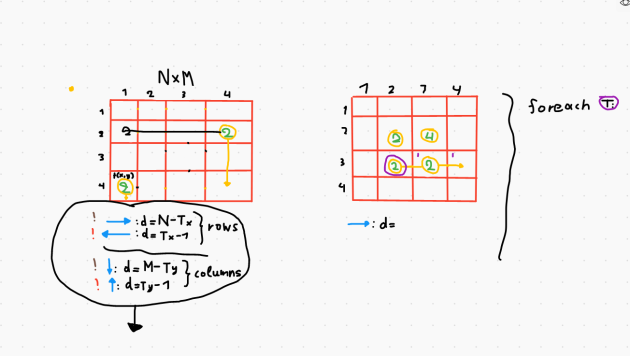 N×M
1 2 3 4
1
2 2 2
3
T(x,y)
4 2
! → : d=N-Tx
! ← : d=Tx-1
} rows
! ↓ : d=M-Ty
! ↑ : d=Ty-1
} columns
1 2 7 4
1
2 2 4
3 2 ' 2 '
4
→ : d=
foreach Ti